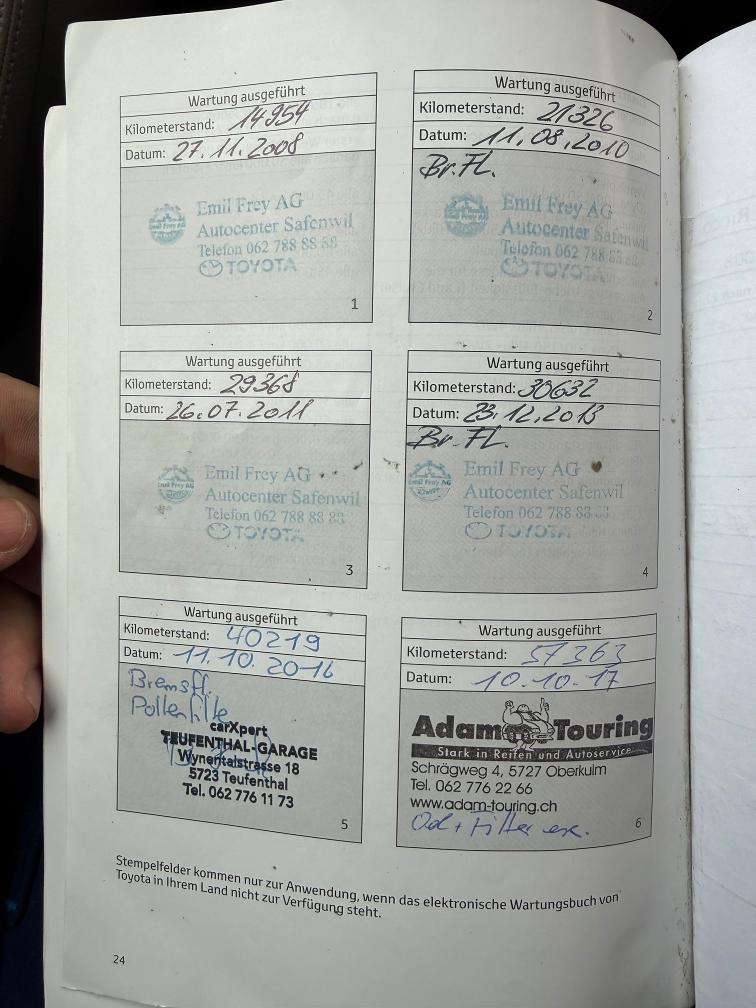 Wartung ausgeführt
Kilometerstand: 14954
Datum: 27.11.2008
Emil Frey AG
Autocenter Safenwil
Telefon 062 788 88 88
TOYOTA
1
Wartung ausgeführt
Kilometerstand: 21326
Datum: 11.08.2010
Br.Fl.
Emil Frey AG
Autocenter Safenwil
Telefon 062 788 88 88
TOYOTA
2
Wartung ausgeführt
Kilometerstand: 29368
Datum: 26.07.2011
Emil Frey AG
Autocenter Safenwil
Telefon 062 788 88 88
TOYOTA
3
Wartung ausgeführt
Kilometerstand: 30632
Datum: 23.12.2013
Br.Fl.
Emil Frey AG
Autocenter Safenwil
Telefon 062 788 88 88
TOYOTA
4
Wartung ausgeführt
Kilometerstand: 40219
Datum: 11.10.2016
Bremsfl.
Pollenfilte
carXpert
TEUFENTHAL-GARAGE
Wynentalstrasse 18
5723 Teufenthal
Tel. 062 776 11 73
5
Wartung ausgeführt
Kilometerstand: 57363
Datum: 10.10.17
Adam Touring
Stark in Reifen und Autoservice
Schrägweg 4, 5727 Oberkulm
Tel. 062 776 22 66
www.adam-touring.ch
Oel + Filter
6
Stempelfelder kommen nur zur Anwendung, wenn das elektronische Wartungsbuch von
Toyota in Ihrem Land nicht zur Verfügung steht.
24